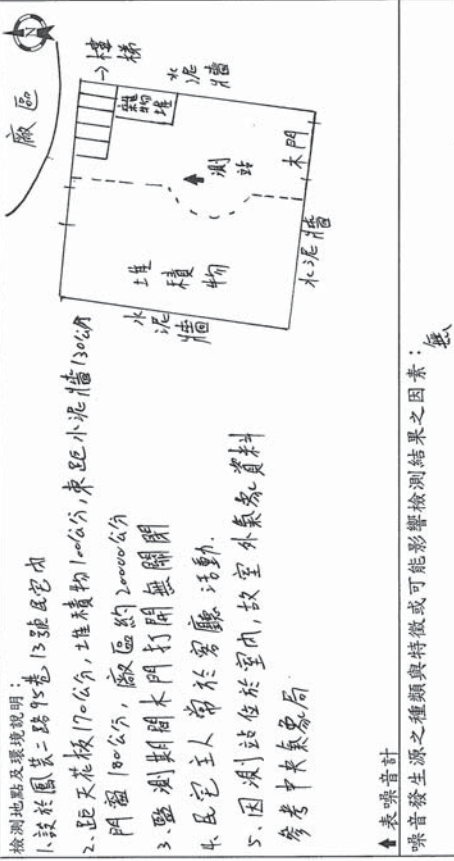 檢測地點及環境說明：
1、設於鳳芸二路95巷13號民宅內
2、距天花板170公分，堆積物100公分，東距水泥牆130公分
門窗100公分，廠區約20000公分
3、監測期間木門打開無關閉
4、民宅主人常於客廳活動.
5、因測站位於室內，故室外氣象資料
參考中央氣象局
廠區
N
→樓梯
雜物堆
水泥牆
測站
木門
堆積物
水泥牆
水泥牆
↑表噪音計
噪音發生源之種類與特徵或可能影響檢測結果之因素：
無